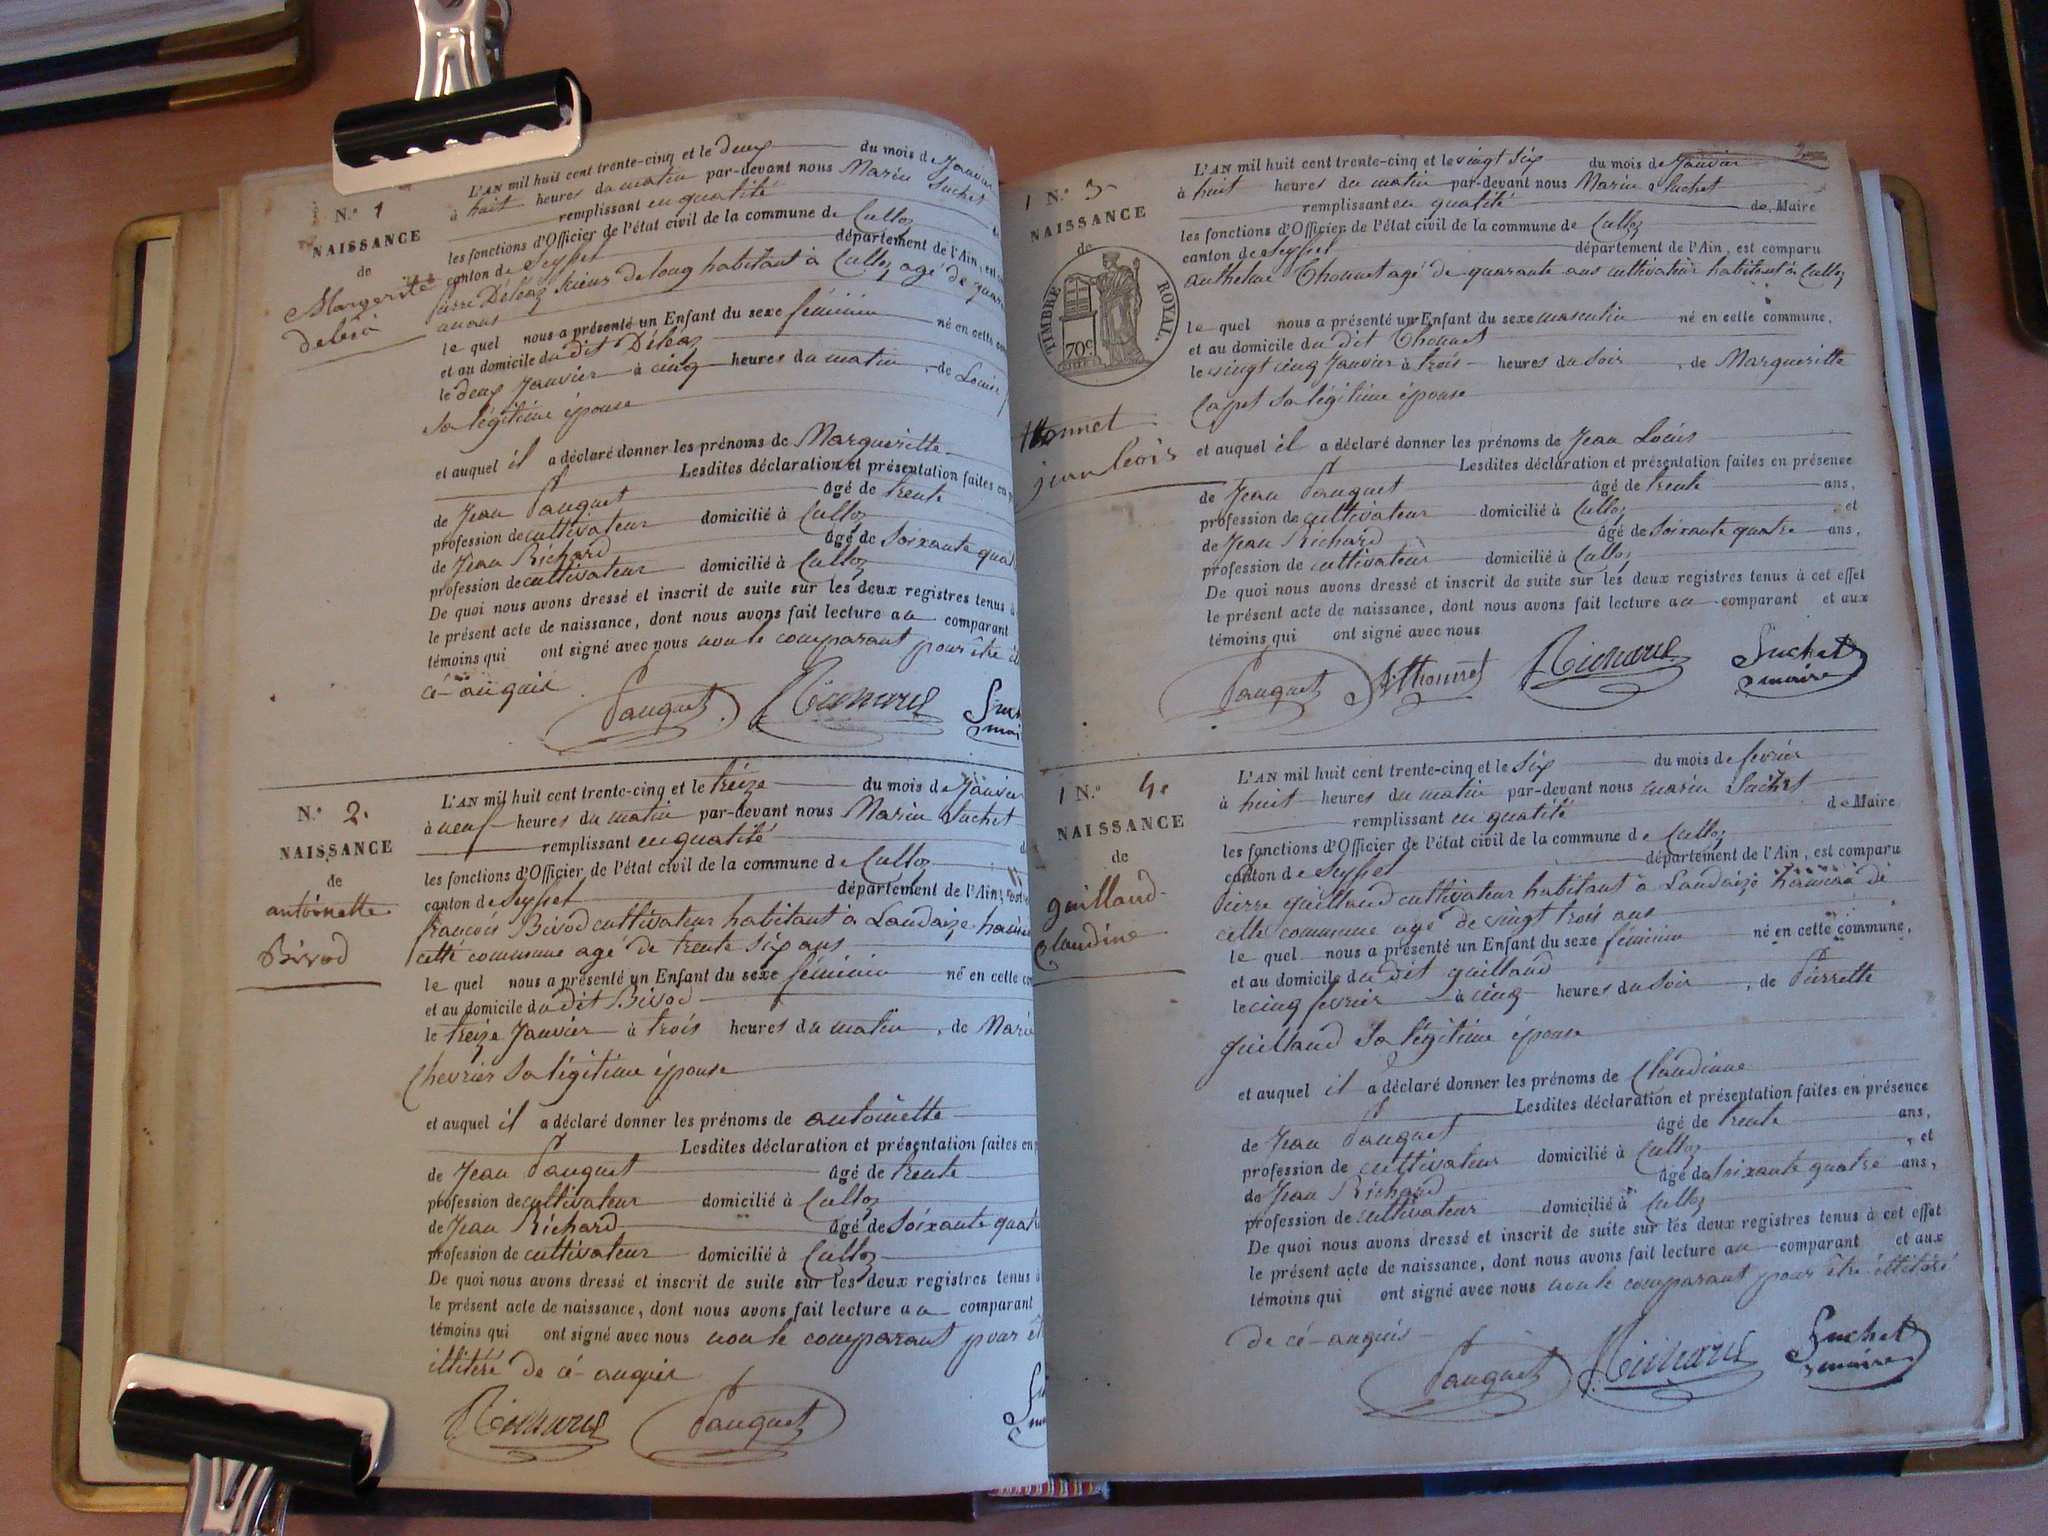 N.º 1
NAISSANCE
de
Margerite
deléa
L'AN mil huit cent trente-cinq et le deux du mois de Janvier
à huit heures du matin par-devant nous Marin Suchet
remplissant en qualité
les fonctions d'Officier de l'état civil de la commune de Culloz
canton de Seyssel département de l'Ain, est
Pierre Déléaz scieur de long habitant à Culloz agé de
le quel nous a présenté un Enfant du sexe féminin né en cette
et au domicile du dit Déléaz
le deux Janvier à cinq heures du matin, de Louise
sa légitime épouse
et auquel il a déclaré donner les prénoms de Margueritte
Lesdites déclaration et présentation faites en
de Jean Pauguet âgé de trente
profession de cultivateur domicilié à Culloz
de Jean Richard âgé de soixante
profession de cultivateur domicilié à Culloz
De quoi nous avons dressé et inscrit de suite sur les deux registres tenus à
le présent acte de naissance, dont nous avons fait lecture au comparant
témoins qui ont signé avec nous non le comparant pour être
cé-anquis
Pauguet Richard
N.º 2.
NAISSANCE
de
antoinette
Bivod
L'AN mil huit cent trente-cinq et le treize du mois de Janvier
à neuf heures du matin par-devant nous Marin Suchet
remplissant en qualité
les fonctions d'Officier de l'état civil de la commune de Culloz
canton de Seyssel département de l'Ain, est
françois Bivod cultivateur habitant à Landaize
cette commune agé de trente six ans
le quel nous a présenté un Enfant du sexe féminin né en cette
et au domicile du dit Bivod
le treize Janvier à trois heures du matin, de Marie
Chevrier sa légitime épouse
et auquel il a déclaré donner les prénoms de antoinette
Lesdites déclaration et présentation faites en
de Jean Pauguet âgé de trente
profession de cultivateur domicilié à Culloz
de Jean Richard âgé de soixante
profession de cultivateur domicilié à Culloz
De quoi nous avons dressé et inscrit de suite sur les deux registres tenus à
le présent acte de naissance, dont nous avons fait lecture au comparant
témoins qui ont signé avec nous non le comparant pour
illitéré de cé-anquis
Richard Pauguet
N.º 3
NAISSANCE
de
TIMBRE ROYAL.
70c
thonnet
jean louis
L'AN mil huit cent trente-cinq et le vingt six du mois de Janvier
à huit heures du matin par-devant nous Marin Suchet
remplissant en qualité de Maire
les fonctions d'Officier de l'état civil de la commune de Culloz
canton de Seyssel département de l'Ain, est comparu
anthelme Thonnet agé de quarante ans cultivateur habitant à Culloz
le quel nous a présenté un Enfant du sexe masculin né en cette commune,
et au domicile du dit Thonnet
le vingt cinq Janvier à trois heures du soir, de Margueritte
sa légitime épouse
et auquel il a déclaré donner les prénoms de Jean Louis
Lesdites déclaration et présentation faites en présence
de Jean Pauguet âgé de trente ans,
profession de cultivateur domicilié à Culloz et
de Jean Richard âgé de soixante quatre ans,
profession de cultivateur domicilié à Culloz
De quoi nous avons dressé et inscrit de suite sur les deux registres tenus à cet effet
le présent acte de naissance, dont nous avons fait lecture au comparant et aux
témoins qui ont signé avec nous
Pauguet Athonnet Richard Suchet
maire
N.º 4.
NAISSANCE
de
guilland
Claudine
L'AN mil huit cent trente-cinq et le six du mois de fevrier
à huit heures du matin par-devant nous marin Suchet
remplissant en qualité de Maire
les fonctions d'Officier de l'état civil de la commune de Culloz
canton de Seyssel département de l'Ain, est comparu
Pierre guilland cultivateur habitant à Landaize hameau de
cette commune agé de vingt trois ans
le quel nous a présenté un Enfant du sexe féminin né en cette commune,
et au domicile du dit guilland
le cinq fevrier à cinq heures du soir, de Pierrette
guilland sa légitime épouse
et auquel il a déclaré donner les prénoms de Claudinne
Lesdites déclaration et présentation faites en présence
de Jean Pauguet âgé de trente ans,
profession de cultivateur domicilié à Culloz, et
de Jean Richard âgé de soixante quatre ans,
profession de cultivateur domicilié à Culloz
De quoi nous avons dressé et inscrit de suite sur les deux registres tenus à cet effet
le présent acte de naissance, dont nous avons fait lecture au comparant et aux
témoins qui ont signé avec nous non le comparant pour être illitéré
de cé-anquis
Pauguet Richard Suchet
maire